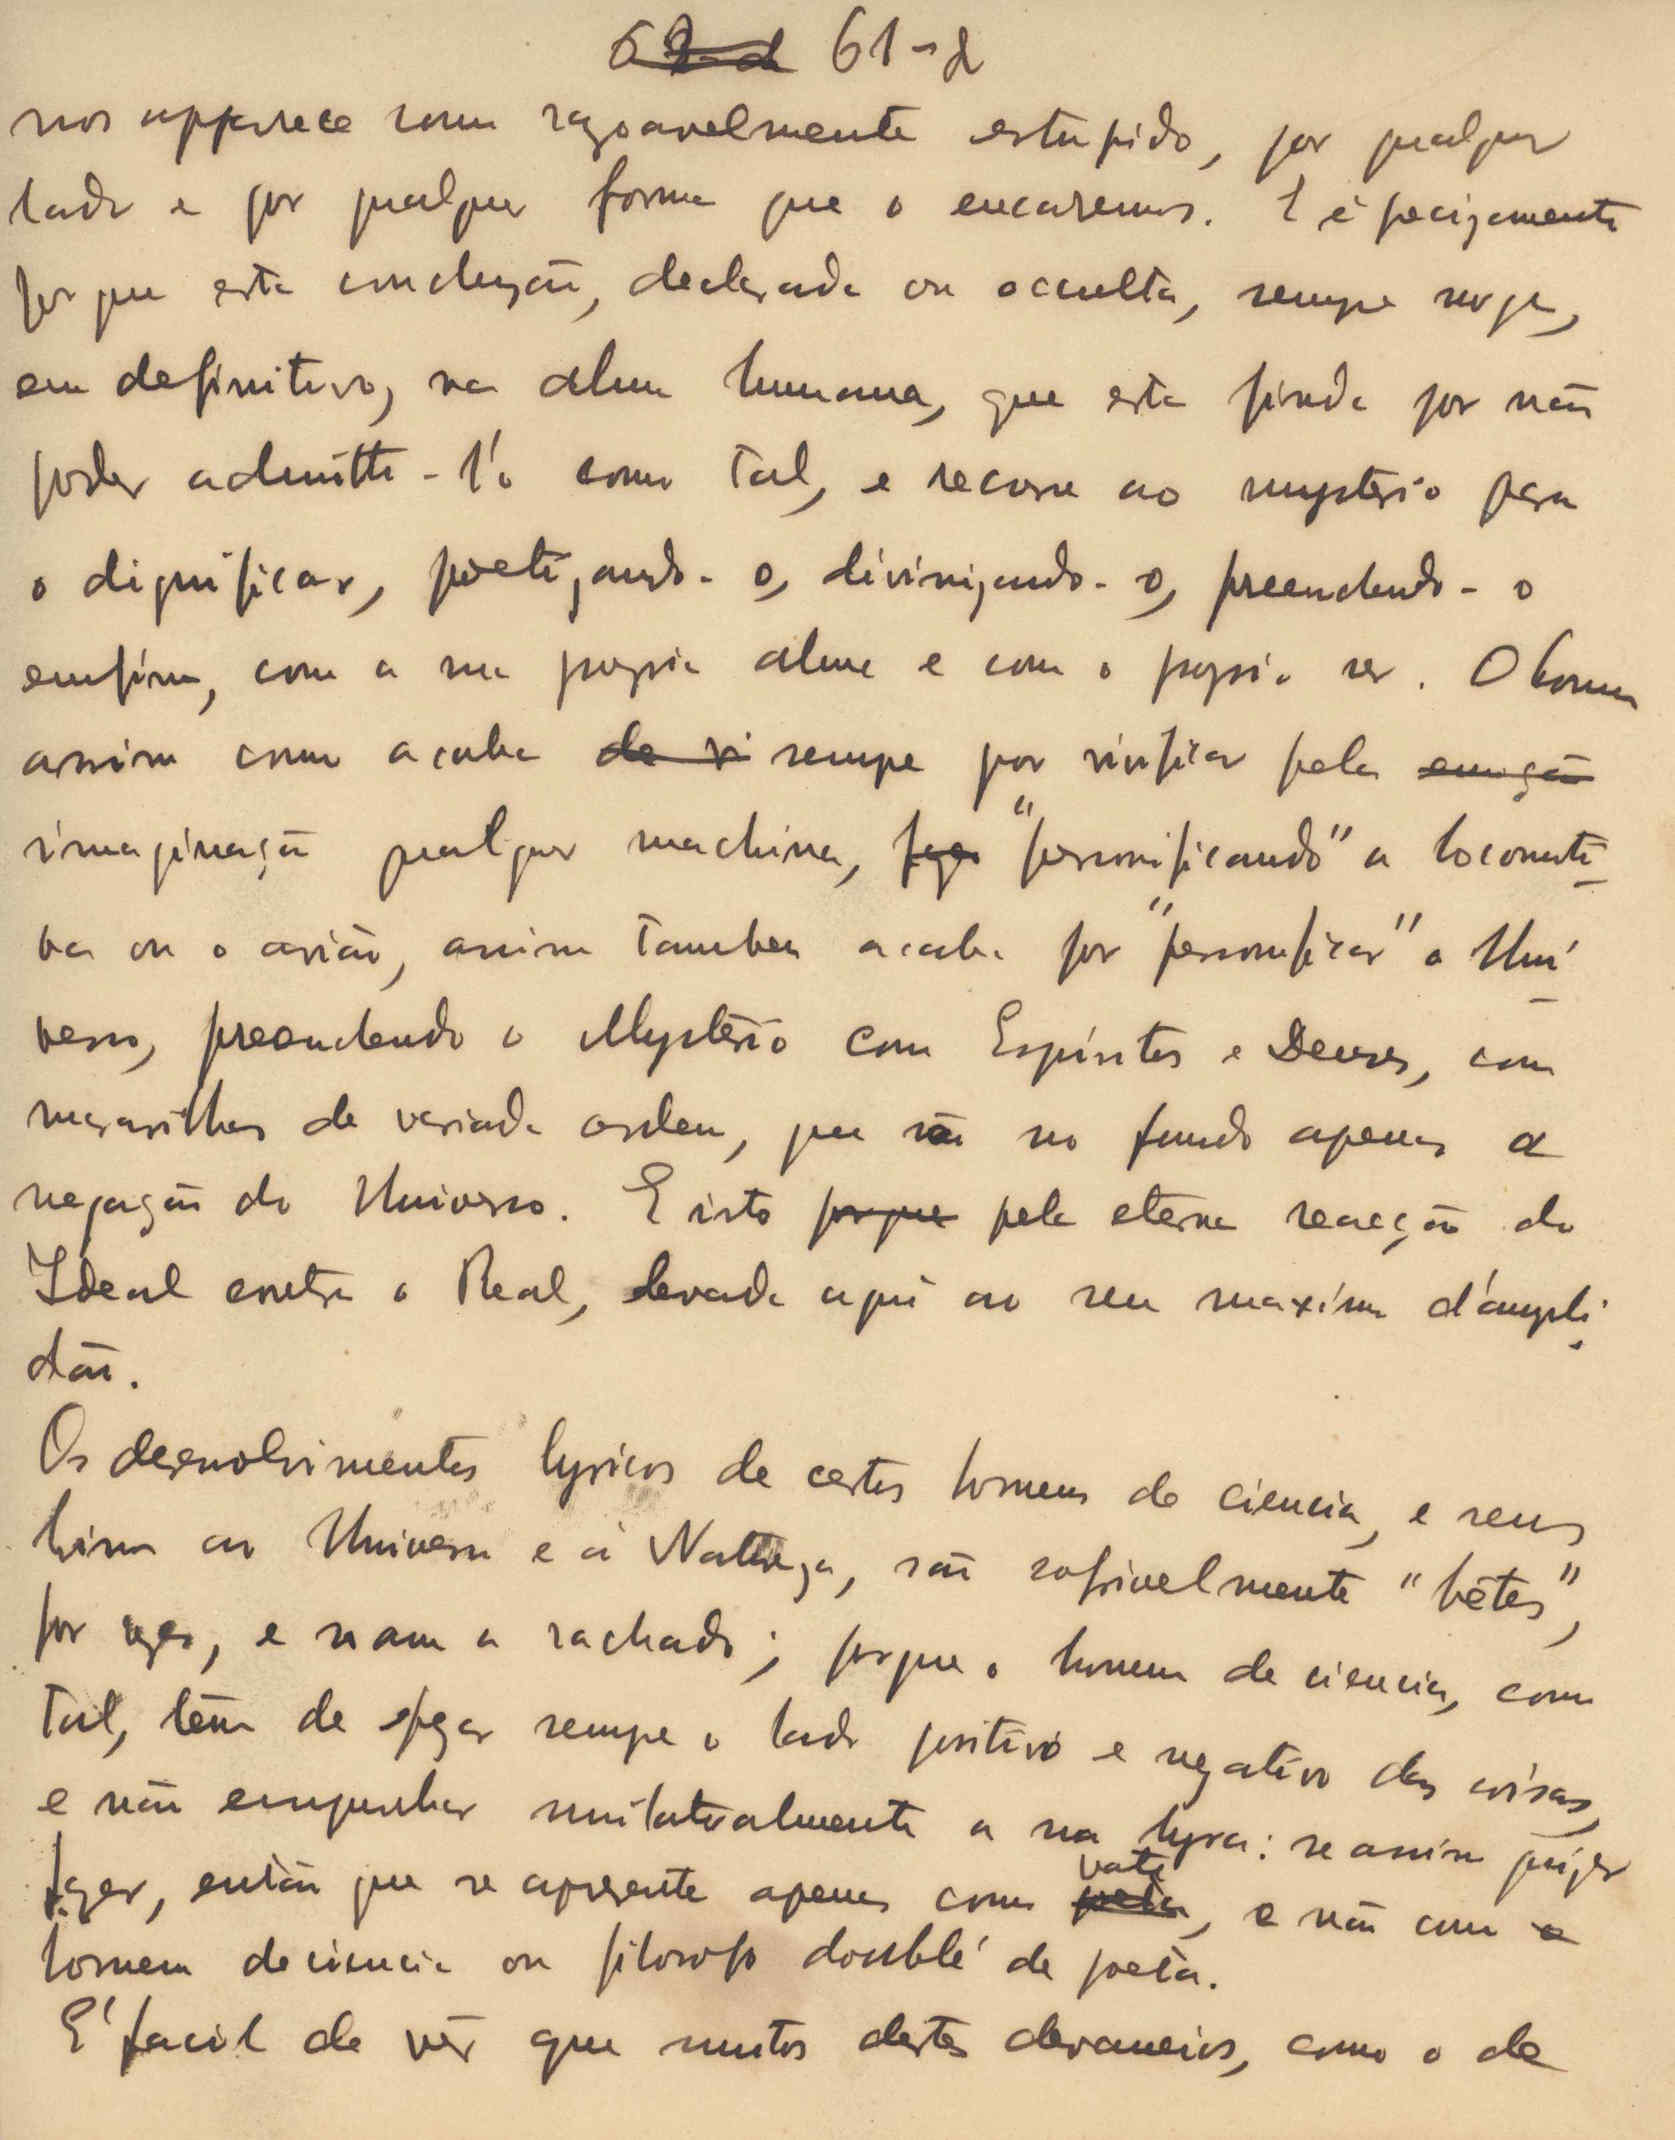 61-d
nos apparece como razoavelmente estupido, por qualquer
lado e por qualquer forma que o encaremos. E é precizamente
por que esta concluzão, declarada ou occulta, sempre surge,
em definitivo, na alma humana, que esta finda por não
poder admitti-l'o como tal, e recorre ao mysterio para
o dignificar, poetizando-o, divinizando-o, preenchendo-o
emfim, com a sua propria alma e com o proprio ser. O homem
assim como acaba de vi sempre por vivificar pela emoção
imaginação qualquer machina, faz "personificando" a locomoti-
va ou o avião, assim tambem acaba por "personificar" o Uni-
verso, preenchendo o Mysterio com Espiritos e Deuses, com
maravilhas de variada ordem, que são no fundo apenas a
negação do Universo. E isto porque pela eterna reacção do
Ideal contra o Real, levada aqui ao seu maximo d'ampli-
dão.
Os desenvolvimentos lyricos de certos homens de ciencia, e seus
hinos ao Universo e á Natureza, são sofrivelmente "bêtes",
por vezes, e soam a rachado; porque o homem de ciencia, como
tal, têm de sempre o lado positivo e negativo das coisas,
e não empunhar unilateralmente a sua lyra: se assim quizer
fazer, então que se aprezente apenas como poeta vate, e não como o
homem de ciencia ou filosofo doublé de poeta.
E' facil de vêr que muitos destes devaneios, como o de